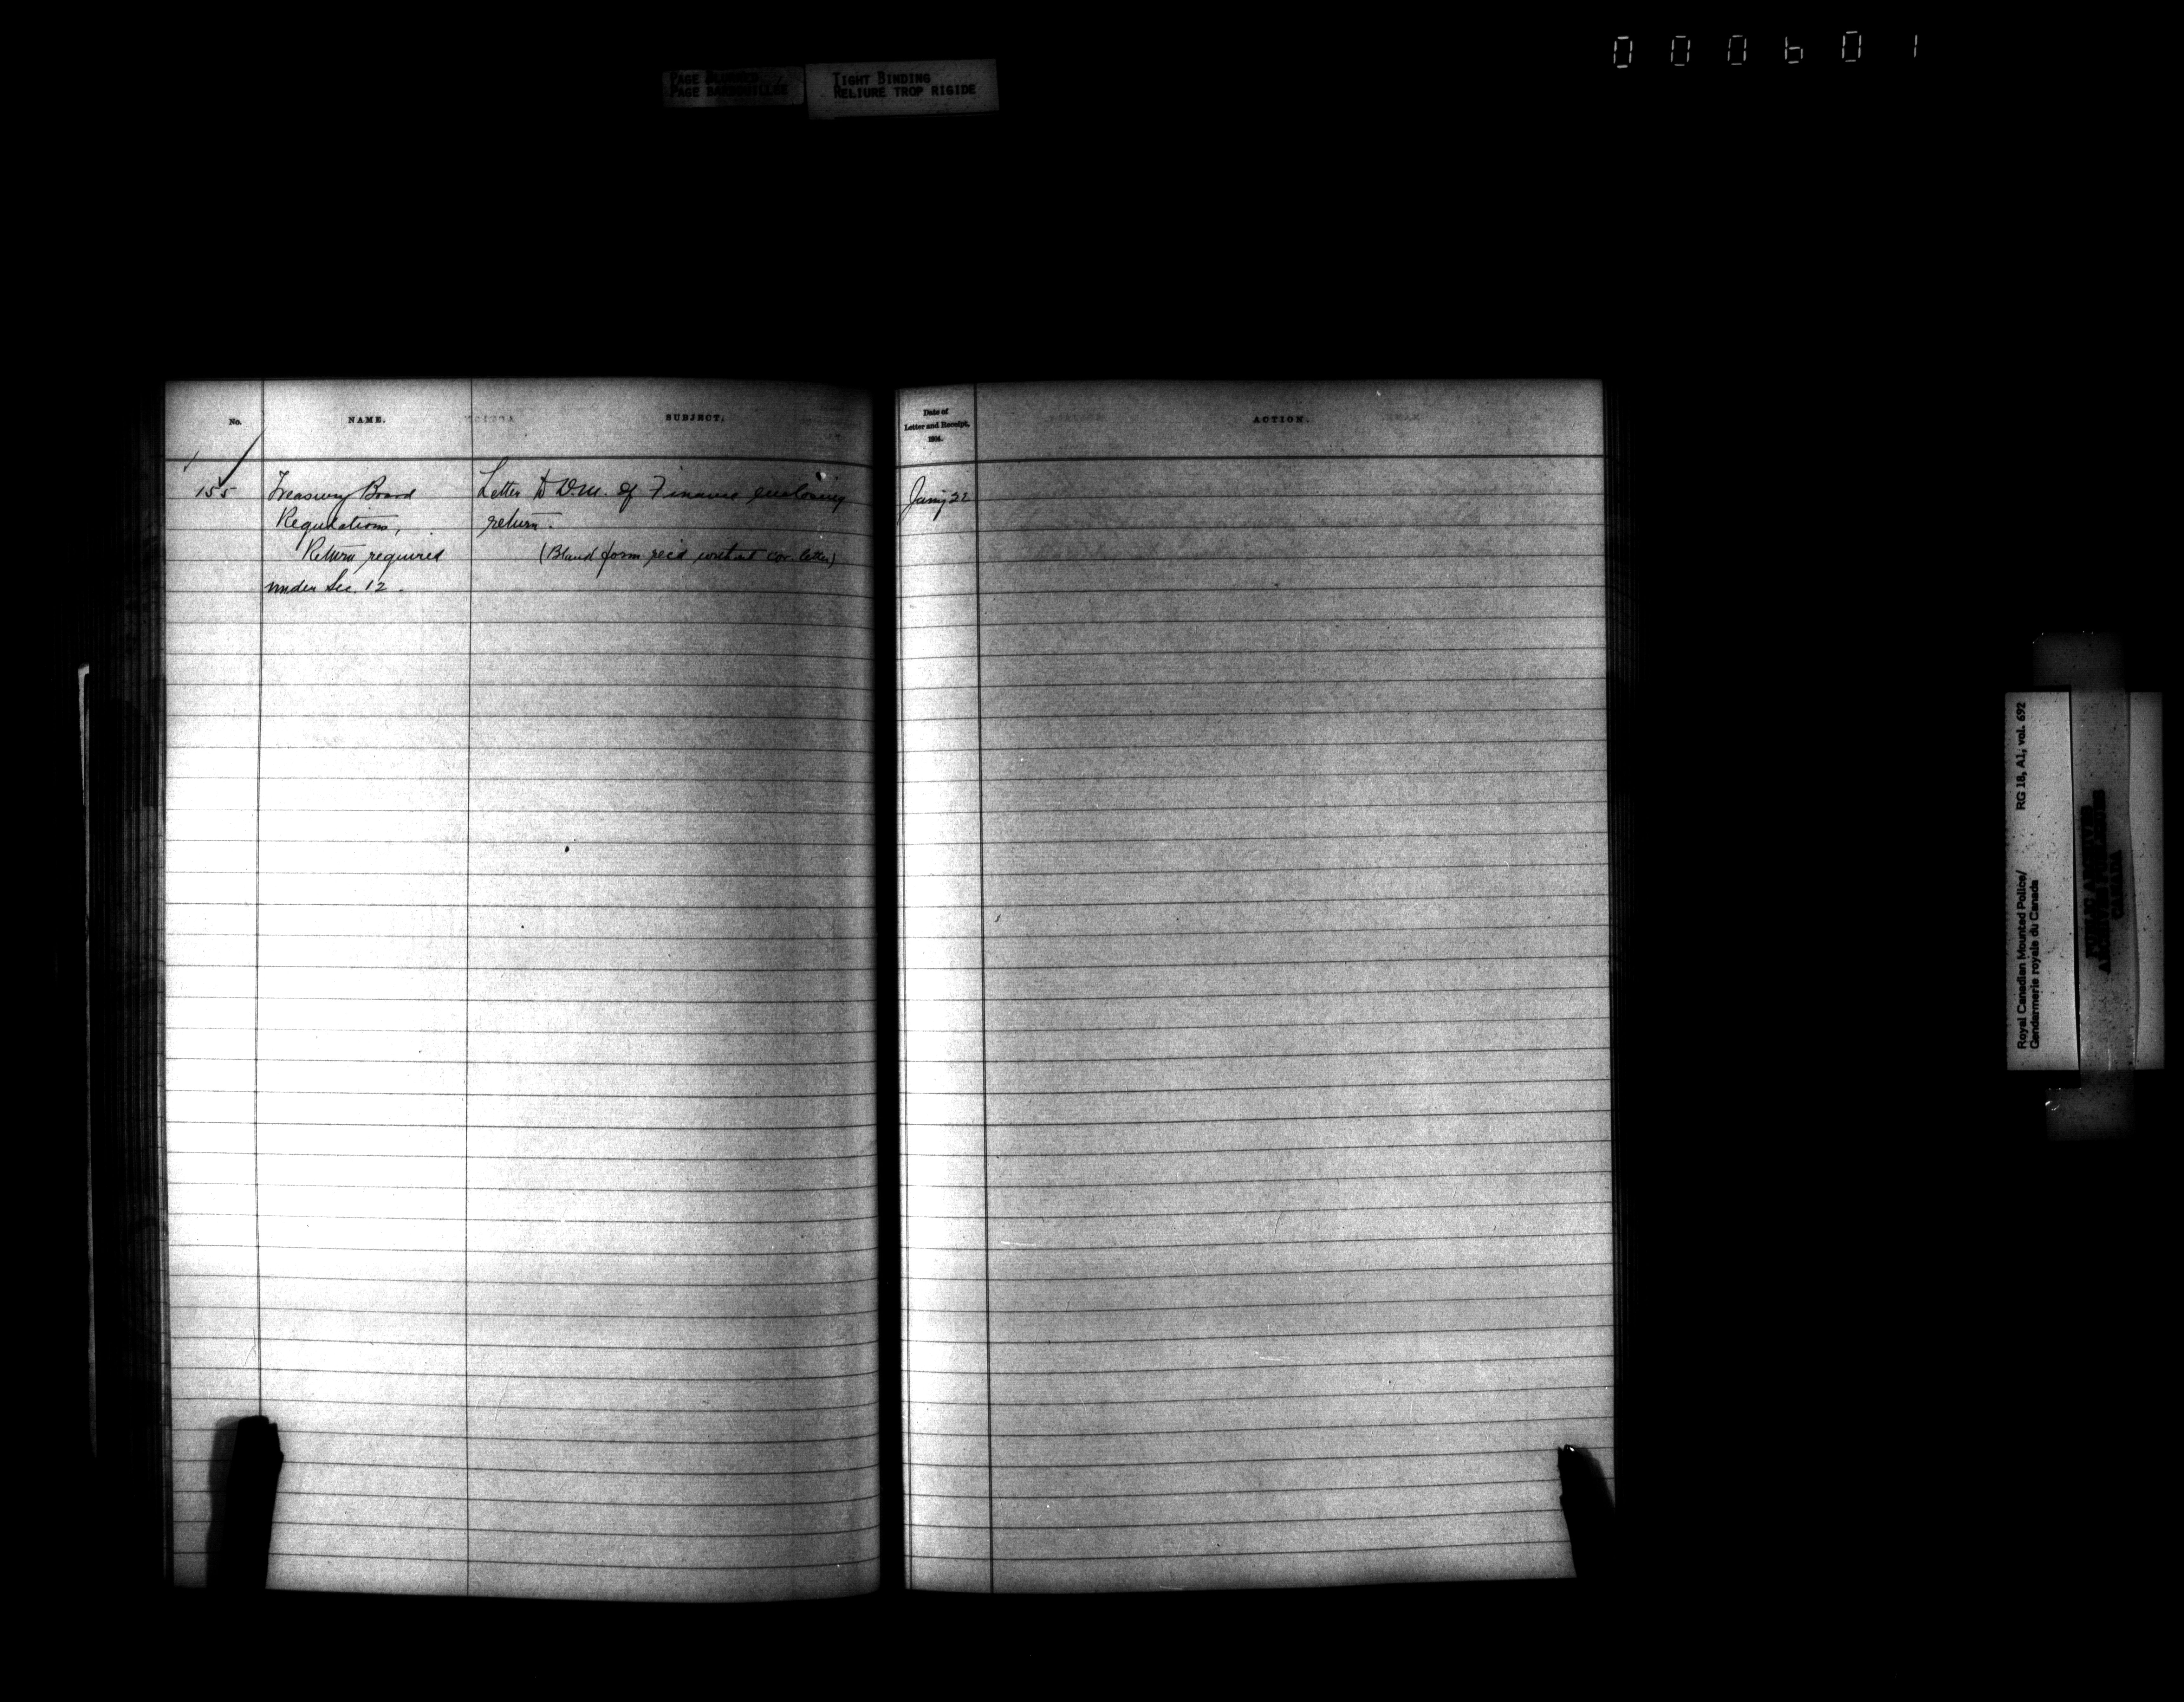 000601
PAGE BLURRED
PAGE BARBOUILLÉE
TIGHT BINDING
RELIURE TROP RIGIDE
No.
NAME.
SUBJECT.
Date of
Letter and Receipt,
ACTION.
155
Treasury Board
Regulations,
Return required
under Sec. 12.
Letter to D.M. of Finance enclosing
return.
(Blank form rec'd without cov. letter)
Jany 22
Royal Canadian Mounted Police/
Gendarmerie royale du Canada
RG 18, A1, vol. 692
PUBLIC ARCHIVES
ARCHIVES PUBLIQUES
CANADA